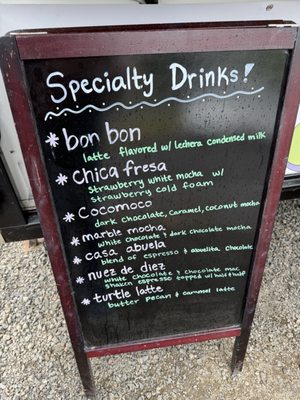 Specialty Drinks!
* bon bon
latte flavored w/ lechera condensed milk
* chica fresa
strawberry white mocha w/
strawberry cold foam
* Cocomoco
dark chocolate, caramel, coconut mocha
* marble mocha
white chocolate & dark chocolate mocha
* casa abuela
blend of espresso & abuelita chocolate
* nuez de diez
white chocolate & chocolate mac
shaken espresso topped w/ half & half
* turtle latte
butter pecan & caramel latte